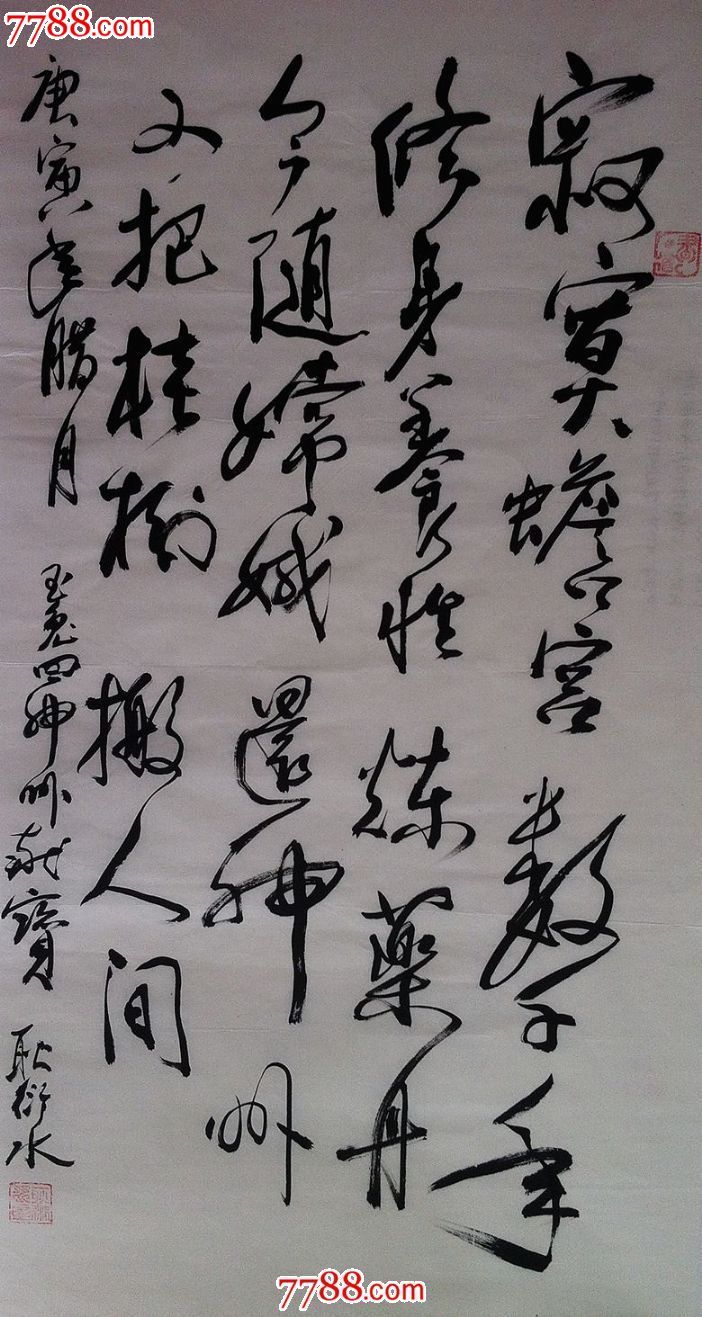 7788.com
寂寞蟾宫數千年
修身養性煉藥丹
今随嫦娥還神州
又把桂樹搬人间
庚寅年腊月
玉兔回神州献寶 耿衍水
7788.com